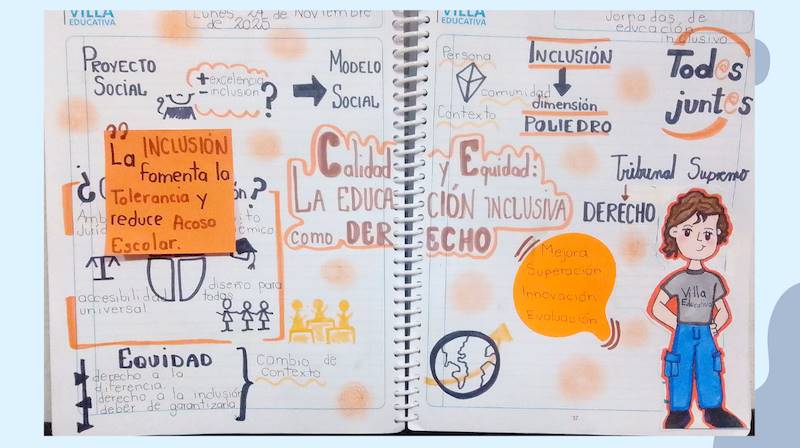 VILLA
EDUCATIVA
Lunes, 24 de Noviembre
de 2025
PROYECTO
SOCIAL
+ excelencia
- inclusión
?
MODELO
SOCIAL
"
La INCLUSIÓN
Fomenta la
Tolerancia y
reduce Acoso
Escolar.
¿
ón?
accesibilidad
universal
diseño para
todos
EQUIDAD
derecho a la
diferencia.
derecho a la inclusión
deber de garantizarla
Cambio de
Contexto
Calidad y Equidad:
LA EDUCACIÓN INCLUSIVA
como DERECHO
VILLA
EDUCATIVA
Jornadas de
educación
inclusiva
Persona
comunidad
Contexto
INCLUSIÓN
dimensión
POLIEDRO
Tod@s
junt@s
Tribunal Supremo
DERECHO
Mejora
Superación
Innovación
Evaluación
Villa
Educativa